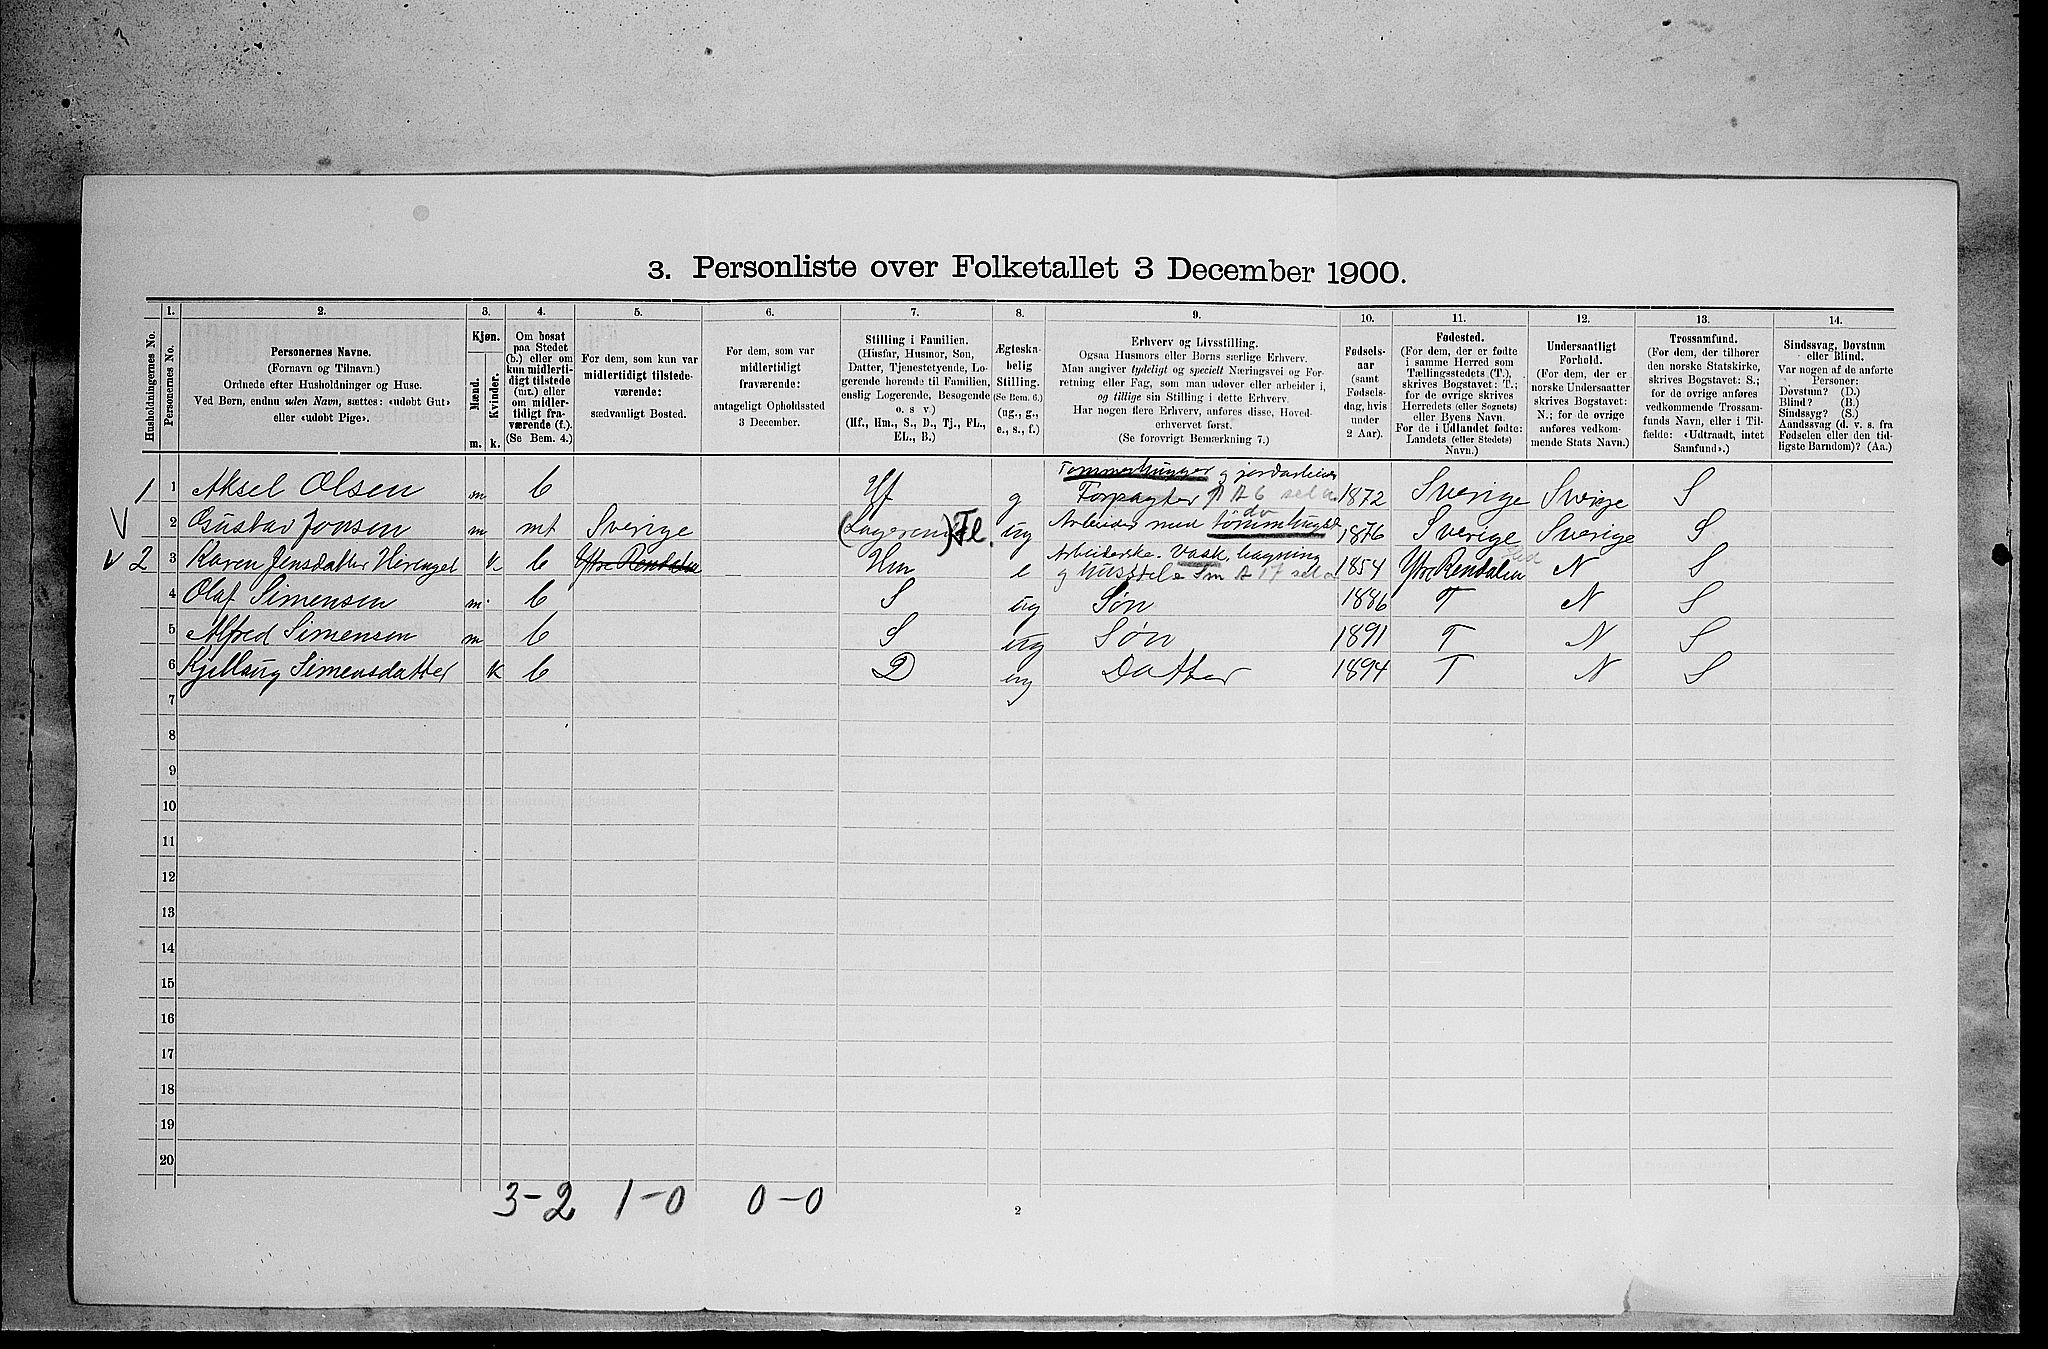 3. Personliste over Folketallet 3 December 1900.
Husholdningernes No.
1. Personernes No.
2. Personernes Navne.
(Fornavn og Tilnavn.)
Ordnede efter Husholdninger og Huse.
Ved Børn, endnu uden Navn, sættes: «udøbt Gut»
eller «udøbt Pige».
3. Kjøn.
Mænd. m.
Kvinder. k.
4.
Om bosat
paa Stedet
(b.) eller om
kun midlerti-
digt tilstede
(mt.) eller
om midler-
tidigt fra-
værende (f.).
(Se Bem. 4.)
5.
For dem, som kun var
midlertidigt tilstede-
værende:
sædvanligt Bosted.
6.
For dem, som var
midlertidigt
fraværende:
antageligt Opholdssted
3 December.
7.
Stilling i Familien.
(Husfar, Husmor, Søn,
Datter, Tjenestetyende, Lo-
gerende hørende til Familien,
enslig Logerende, Besøgende
o. s v.)
(Hf., Hm., S., D., Tj., FL.,
EL., B.)
8.
Ægteska-
belig
Stilling.
(Se Bem. 6.)
(ug., g.,
e., s., f.)
9.
Erhverv og Livsstilling.
Ogsaa Husmors eller Børns særlige Erhverv.
Man angiver tydeligt og specielt Næringsvei og For-
retning eller Fag, som man udøver eller arbeider i,
og tillige sin Stilling i dette Erhverv.
Har nogen flere Erhverv, anføres disse, Hoved-
erhvervet først.
(Se forøvrigt Bemærkning 7.)
10.
Fødsels-
aar
(samt
Fødsels-
dag, hvis
under
2 Aar).
11.
Fødested.
(For dem, der er fødte
i samme Herred som
Tællingsstedets (T.),
skrives Bogstavet: T.;
for de øvrige skrives
Herredets (eller Sognets)
eller Byens Navn.
For de i Udlandet fødte:
Landets (eller Stedets)
Navn.)
12.
Undersaatligt
Forhold.
(For dem, der er
norske Undersaatter
skrives Bogstavet:
N.; for de øvrige
anføres vedkom-
mende Stats Navn.)
13.
Trossamfund.
(For dem, der tilhører
den norske Statskirke,
skrives Bogstavet: S.;
for de øvrige anføres
vedkommende Trossam-
funds Navn, eller i Til-
fælde: «Udtraadt, intet
Samfund».)
14.
Sindssvag, Døvstum
eller Blind.
Var nogen af de anførte
Personer:
Døvstum? (D.)
Blind? (B.)
Sindssyg? (S.)
Aandssvag (d. v. s. fra
Fødselen eller den tid-
ligste Barndom)? (Aa.)
Tømmerhugger og jordarbeider
1 1 Aksel Olsen m b Hf g Forpagter A 6 1872 Sverige Sverige S
do
2 Gustav Jonsen m mt Sverige (Logerende) Fl. ug Arbeider med tømmerhugst 1876 Sverige Sverige S
2 3 Karen Jensdatter k b Ytre Rendalen Hm e Arbeiderske. Vask, bagning 1854 Ytre Rendalen N S
4 Olaf Simensen m b S ug Søn 1886 T N S
5 Alfred Simensen m b S ug Søn 1891 T N S
6 Kjellaug Simensdatter k b D ug Datter 1894 T N S
7
8
9
10
11
12
13
14
15
16
17
18
19
20
3-2 1-0 0-0
2